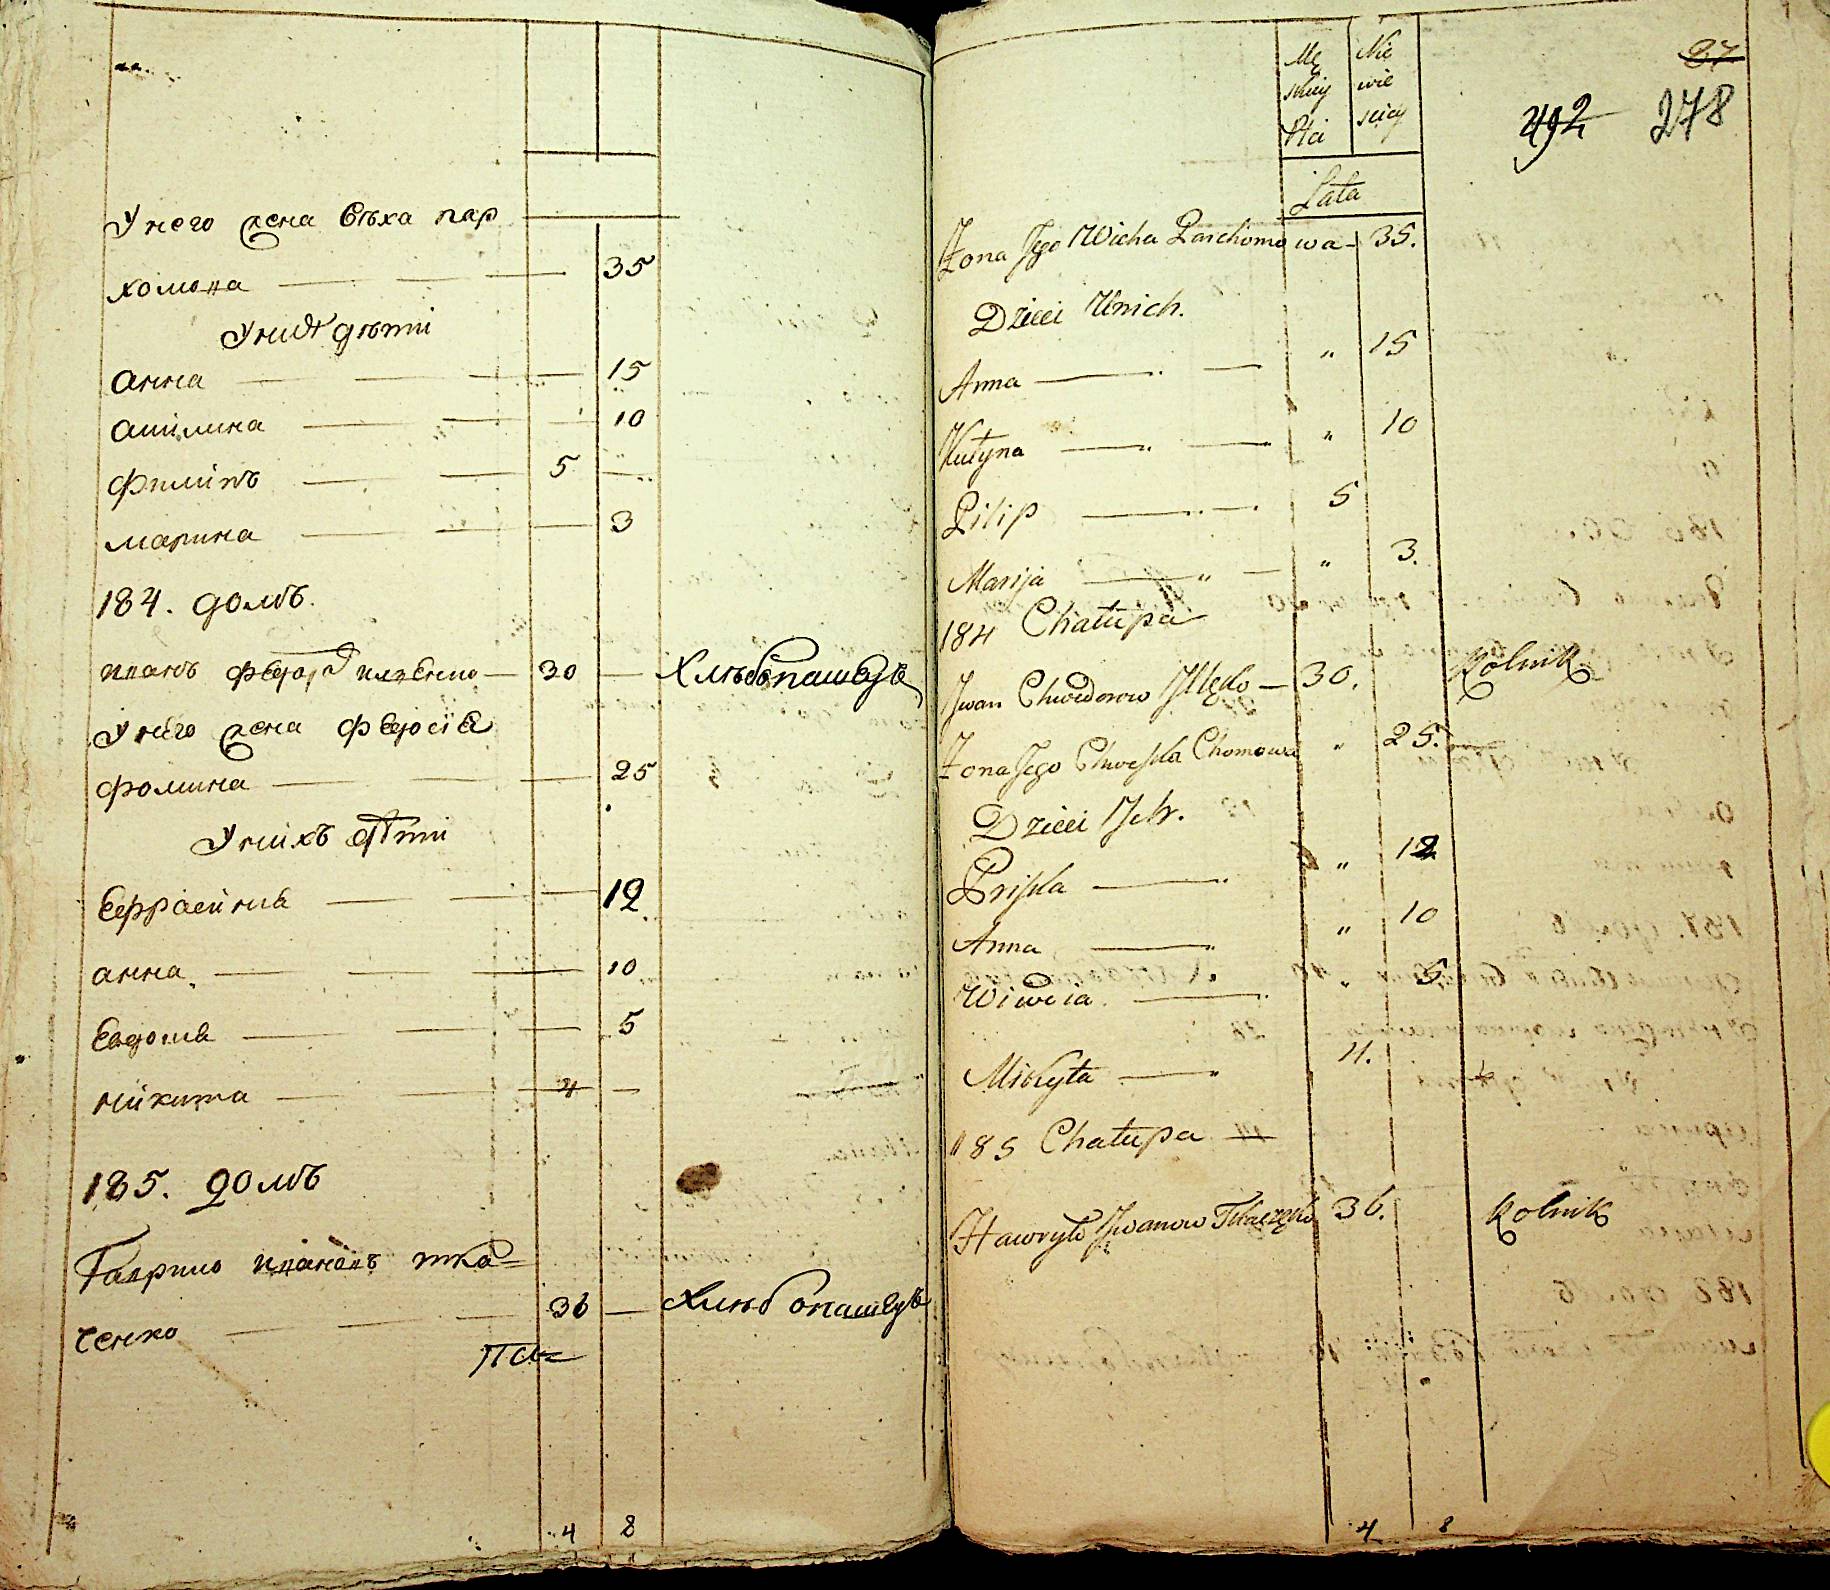 У него жена Евѣха пар
хомова 35
У нихъ дѣти
анна 15
Филипъ 5
марина 3
184. домъ.
иванъ Федоровъ 30 Хлѣбопашецъ
У него жена Федосіа
фомина 25
У нихъ дѣти
Ефросинна 12
анна 10
Евдокиа 5
никита 4
185. домъ
Гаврило ивановъ тка=
ченко 36 Хлѣбопашецъ
Па=
4 8
Mę skiey Płci
Nie wie sciey
87
492 278
Lata
Żona Jego Wicha Parchomowa 35.
Dzieci Unich.
Anna " 15
Kułyna " 10
Pilip 5
Marija " 3.
184 Chałupa
Jwan Chwedorow 30. Rolnik
Żona Jego Chweśka Chomowa " 25.
Dzieci Ich.
Priska " 12
Anna " 10
Wiwdia " 5.
Mikyta 4.
185 Chałupa
Hawryło Jwanow Tkaczęko 36. Rolnik
4 8